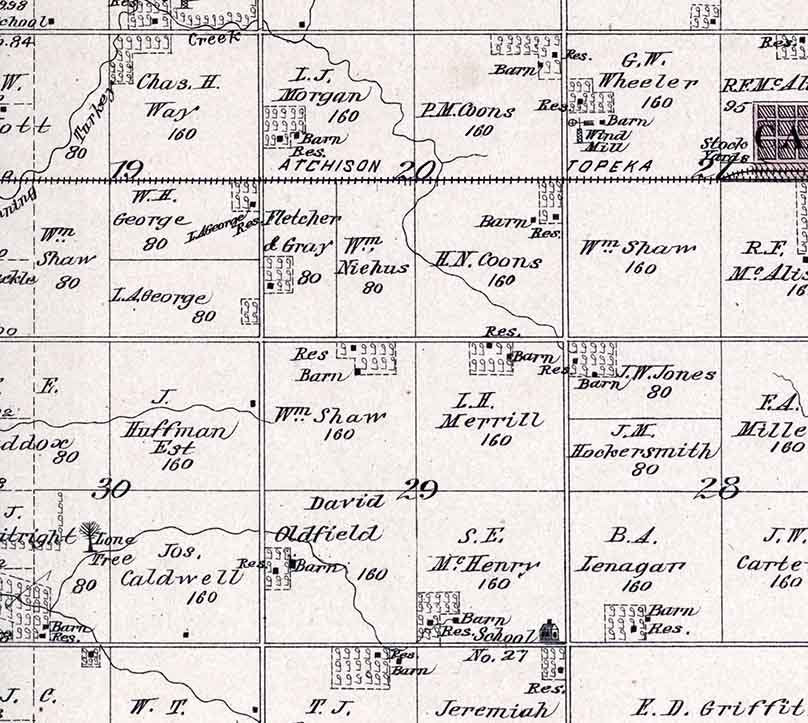 Res.
School
.84
Creek
Turkey
80
W.
ott
Chas. H.
Way
160
19
L. J.
Morgan
160
Barn
Res.
ATCHISON
P.M. Coons
160
Barn
20
Res.
G.W.
Wheeler
160
Res.
Barn
Wind
Mill
TOPEKA
Res.
R.F. McAli
95
CA
Stock
Yards
Wm
Shaw
80
W. H.
George
80
L. A. George
Res.
L. A. George
80
Fletcher
& Gray
80
Wm
Niehus
80
Barn
Res.
H. N. Coons
160
Res.
Wm Shaw
160
R. F.
McAlis
16
E.
ddox
80
J.
Huffman
Est
160
30
Res
Barn
Wm Shaw
160
Barn
L. H.
Merrill
160
29
Res
Barn
J. W. Jones
80
J. M.
Hockersmith
80
28
F. A.
Mille
160
J.
itright
Long
Tree
80
Barn
Res.
Jos.
Caldwell
160
David
Oldfield
Res.
Barn
160
S. E.
McHenry
160
Barn
Res.
School
No. 27
B. A.
Lenagar
160
Barn
Res.
J. W.
Carte
160
J. C.
W. T.
T. J.
Res.
Barn
Jeremiah
Res.
E. D. Griffit